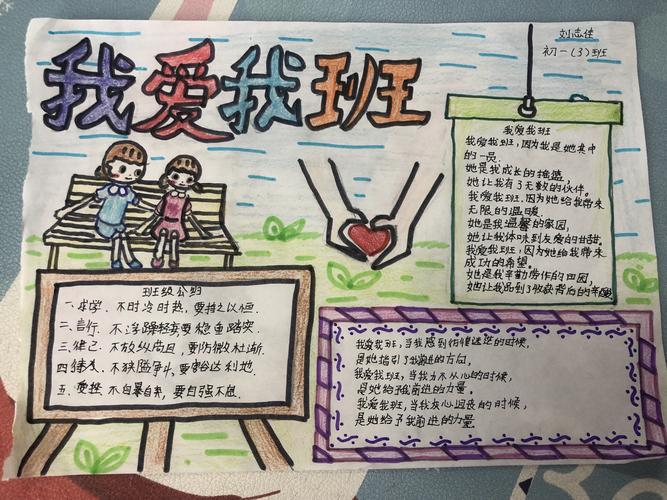 我爱我班
刘志佳
初一(3)班
我爱我班
我爱我班,因为我是她其中
的一员.
她是我成长的摇篮,
她让我有了无数的伙伴。
我爱我班.因为她给我带来
无限的温暖.
她是我温馨的家园,
她让我体味到友爱的甘甜.
我爱我班:因为她给我带来
成功的希望.
她是我辛勤劳作的田园,
她让我品到了收获背后的辛酸
班级公约
一.求学.不时冷时热,要持之以恒.
二.言行.不浮躁轻率要稳重踏实.
三.律己.不放纵苟且,要防微杜渐.
四.待友.不狭隘争斗,要豁达利他.
五.不自暴自弃,要自强不息.
我爱我班,当我感到彷徨迷茫的时候,
是她指引了我前进的方向,
我爱我班,当我力不从心的时候,
是她给予我前进的力量,
我爱我班,当我灰心沮丧的时候,
是她给予我前进的力量